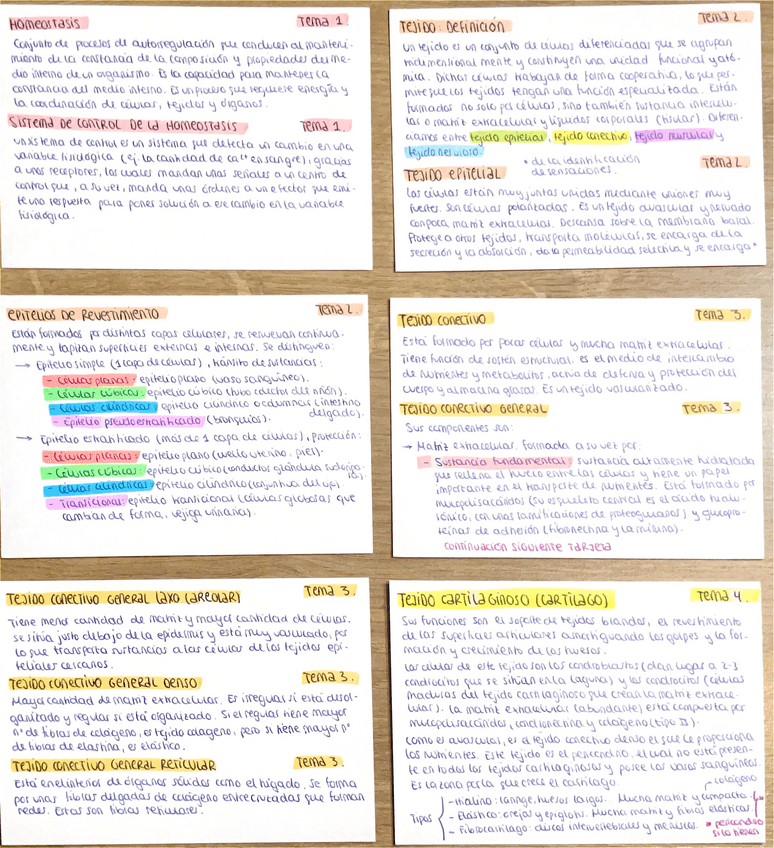 HOMEOSTASIS Tema 1
Conjunto de procesos de autorregulación que conducen al manteni-
miento de la constancia de la composición y propiedades del me-
dio interno de un organismo. Es la capacidad para mantener la
constancia del medio interno. Es un proceso que requiere energía y
la coordinación de células, tejidos y órganos.
SISTEMA DE CONTROL DE LA HOMEOSTASIS Tema 1.
Un sistema de control es un sistema que detecta un cambio en una
variable fisiológica (ej. la cantidad de Ca⁺⁺ en sangre), gracias
a unos receptores, los cuales mandan unas señales a un centro de
control que, a su vez, manda unas órdenes a un efector que emi-
te una respuesta para poner solución a ese cambio en la variable
fisiológica.
TEJIDO: Definición Tema 2.
Un tejido es un conjunto de células diferenciadas que se agrupan
tridimensional mente y constituyen una unidad funcional y ató-
mica. Dichas células trabajan de forma cooperativa, lo que per-
mite que los tejidos tengan una función especializada. Están
formados no solo por células, sino también sustancia intercelu-
lar o matriz extracelular y líquidos corporales (tisular). Diferen-
ciamos entre tejido epitelial, tejido conectivo, tejido muscular y
tejido nervioso.
* de la identificación
de sensaciones.
TEJIDO EPITELIAL Tema 2.
Las células están muy juntas unidas mediante uniones muy
fuertes. Son células polarizadas. Es un tejido avascular y nervado
con poca matriz extracelular. Descansa sobre la membrana basal.
Protege a otros tejidos, transporta moléculas, se encarga de la
secreción y la absorción, da la permeabilidad selectiva y se encarga *
EPITELIOS DE REVESTIMIENTO Tema 2.
Están formados por distintas capas celulares, se renuevan continua-
mente y tapizan superficies externas e internas. Se distinguen:
→ Epitelio simple (1 capa de células), tránsito de sustancias:
- Células planas: epitelio plano (vaso sanguíneo).
- Células cúbicas: epitelio cúbico (tubo colector del riñón).
- Células cilíndricas: epitelio cilíndrico o columnar (intestino
delgado).
- Epitelio pseudoestratificado (bronquios).
→ Epitelio estratificado (más de 1 capa de células), protección:
- Células planas: epitelio plano (cuello uterino, piel).
- Células cúbicas: epitelio cúbico (conductos glándula sudorípa-
ra).
- Células cilíndricas: epitelio cilíndrico (conjuntiva del ojo).
- Transicional: epitelio transicional (células globosas que
cambian de forma, vejiga urinaria).
TEJIDO CONECTIVO Tema 3.
Está formado por pocas células y mucha matriz extracelular.
Tiene función de sostén estructural, es el medio de intercambio
de nutrientes y metabolitos, actúa de defensa y protección del
cuerpo y almacena grasas. Es un tejido vascularizado.
TEJIDO CONECTIVO GENERAL Tema 3.
Sus componentes son:
→ Matriz extracelular, formada a su vez por:
- Sustancia fundamental: sustancia altamente hidratada
que rellena el hueco entre las células y tiene un papel
importante en el transporte de nutrientes. Está formada por
mucopolisacáridos (su esqueleto central es el ácido hialu-
rónico, con unas ramificaciones de proteoglucanos) y glucopro-
teínas de adhesión (fibronectina y laminina).
continuación siguiente tarjeta
TEJIDO CONECTIVO GENERAL LAXO (AREOLAR) Tema 3.
Tiene menor cantidad de matriz y mayor cantidad de células.
Se sitúa justo debajo de la epidermis y está muy vascularizado, por
lo que transporta sustancias a las células de los tejidos epi-
teliales cercanos.
TEJIDO CONECTIVO GENERAL DENSO Tema 3.
Mayor cantidad de matriz extracelular. Es irregular si está desor-
ganizado y regular si está organizado. Si el regular tiene mayor
nº de fibras de colágeno, es tejido colágeno, pero si tiene mayor nº
de fibras de elastina, es elástico.
TEJIDO CONECTIVO GENERAL RETICULAR Tema 3.
Está en el interior de órganos sólidos como el hígado. Se forma
por unas fibras delgadas de colágeno entrecruzadas que forman
redes. Estas son fibras reticulares.
TEJIDO CARTILAGINOSO (CARTÍLAGO) Tema 4.
Sus funciones son el soporte de tejidos blandos, el revestimiento
de las superficies articulares amortiguando los golpes y la for-
mación y crecimiento de los huesos.
Las células de este tejido son los condroblastos (dan lugar a 2-3
condrocitos que se sitúan en la laguna) y los condrocitos (células
maduras del tejido cartilaginoso que crean la matriz extrace-
lular). La matriz extracelular (abundante) está compuesta por
mucopolisacáridos, condronectina y colágeno (tipo II).
Como es avascular, es el tejido conectivo denso el que le proporciona
los nutrientes. Este tejido es el pericondrio, el cual no está presen-
te en todos los tejidos cartilaginosos y posee los vasos sanguíneos.
Es la zona por la que crece el cartílago.
colágeno
Tipos - Hialino: laringe, huesos largos. Mucha matriz y compacta.
- Elástico: oreja y epiglotis. Mucha matriz y fibras elásticas.
- Fibrocartílago: discos intervertebrales y meniscos. * pericondrio
si lo tienen